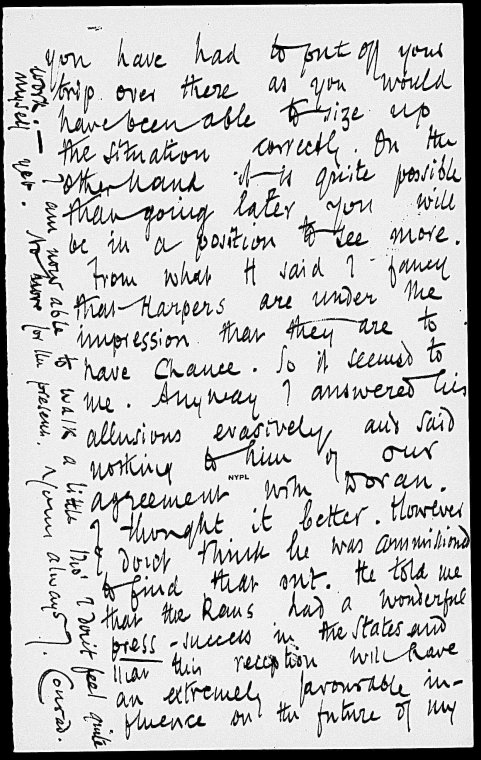 you have had to put off your
trip over there as you would
have been able to size up
the situation correctly. On the
other hand it is quite possible
that going later you will
be in a position to see more.
From what H said I fancy
that Harpers are under the
impression that they are to
have Chance. So it seemed to
me. Anyway I answered his
allusions evasively and said
nothing to him of our
agreement with Doran.
I thought it better. However
I don't think he was commissioned
to find that out. He told me
that the Raus had a wonderful
press-success in the States and
that this reception will have
an extremely favourable in-
fluence on the future of my
work. — I am now able to walk a little tho' I don't feel quite
myself yet. No more for the present. Yours always J. Conrad.
NYPL